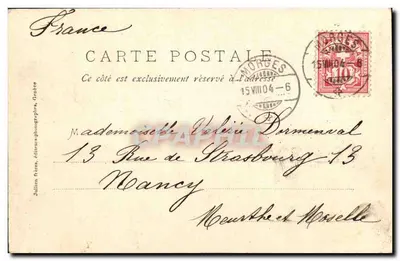 France
CARTE POSTALE
Ce côté est exclusivement réservé à l'adresse
MORGES
15 VIII 04 – 6
MORGES
15 VIII 04 – 6
10
Mademoiselle Valérie Dormenval
13 Rue de Strasbourg 13
Nancy
Meurthe et Moselle
Jullien frères, éditeurs-photographes, Genève